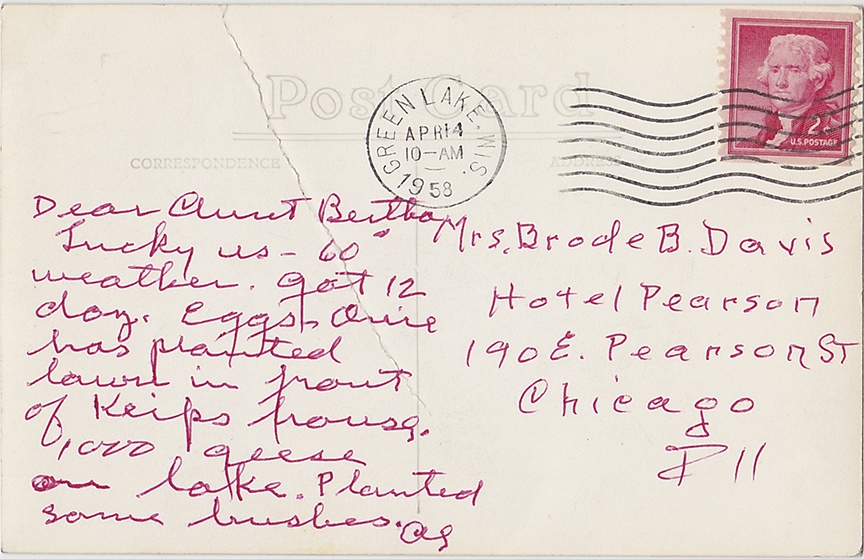 Post Card
CORRESPONDENCE
ADDRESS
GREEN LAKE, WIS.
APR 14
10-AM
1958
2¢
U.S. POSTAGE
Dear Aunt Bertha
Lucky us - 60°
weather. Got 12
doz. Eggs.
has planted
lawn in front
of Keips house.
1,000 geese
on lake. Planted
some bushes.
Mrs. Brode B. Davis
Hotel Pearson
190 E. Pearson St
Chicago
11